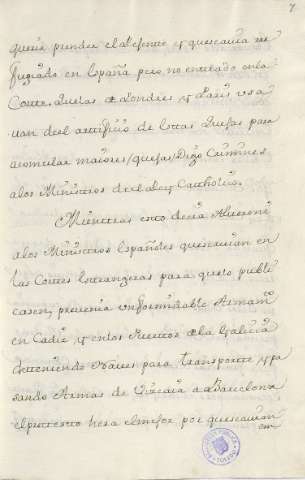 7
queria prender el Defente y quesecavia re
fugiado en España pero, no entrado en la
Corte. Quelas de Londres y Paris usa
van de el artificio de Estas Quejas para
acomular maiores /quejas/ Digo Crimines
alos Ministros de el Rey Catholico.
Mientras esto decia Alveroni
alos Ministros Españoles queresiuian en
las Cortes Extrangeras para questo publi
casen, prevenia un formidable Armam
en Cadiz y en los Puertos de la Galicia
deteniendo Naves para transporte y pa
sando Armas de Vizcaia a Barcelona
el pretesto hera el mejor por que
em